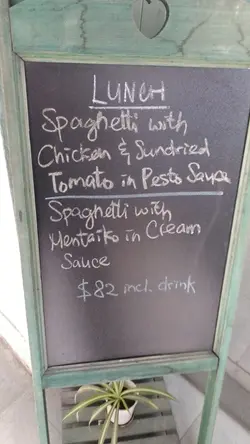 LUNCH
Spaghetti with
Chicken & Sundried
Tomato in Pesto Sauce
Spaghetti with
Mentaiko in Cream
Sauce
$82 incl. drink